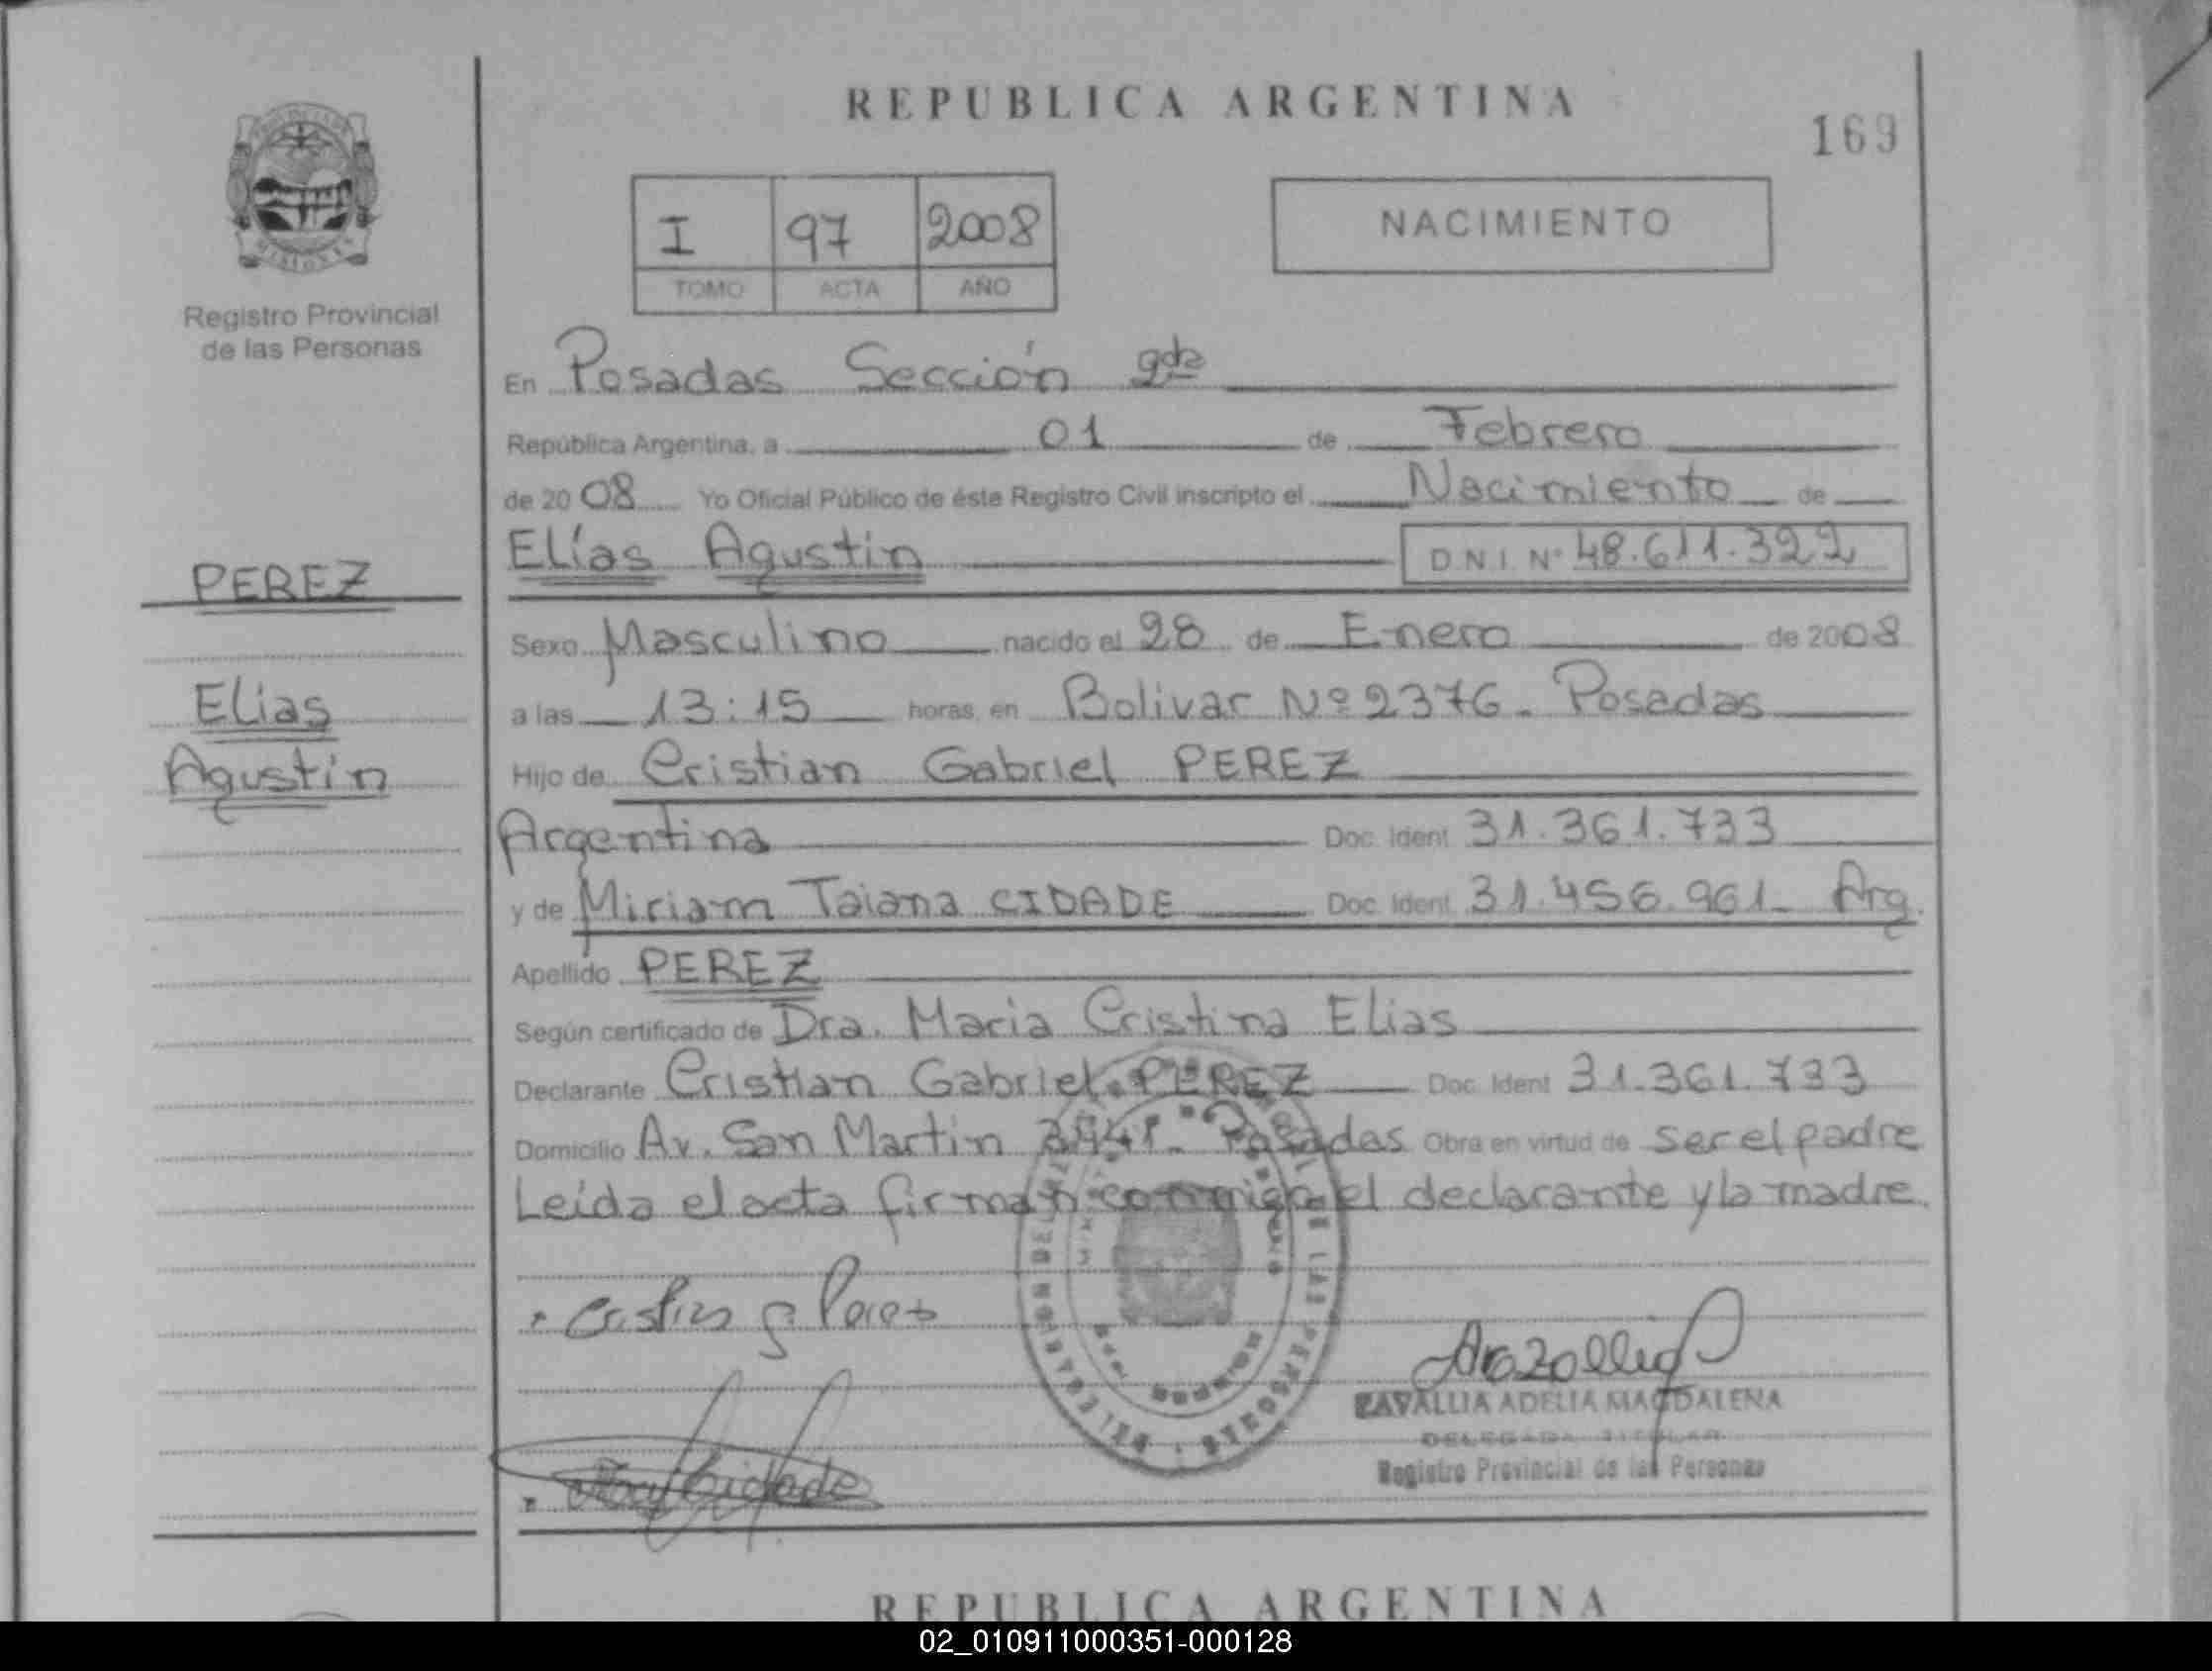 REPUBLICA ARGENTINA
169
I 97 2008
TOMO ACTA AÑO
NACIMIENTO
Registro Provincial
de las Personas
En Posadas Sección 2da
República Argentina, a 01 de Febrero
de 2008 Yo Oficial Público de éste Registro Civil inscripto el Nacimiento de
Elías Agustin
DNI Nº 48.611.322
PEREZ
Elias
Agustín
Sexo Masculino nacido el 28 de Enero de 2008
a las 13:15 horas en Bolivar Nº 2376. Posadas
Hijo de Cristian Gabriel PEREZ
Argentina Doc. Ident 31.361.733
y de Miriam Taiana CIDADE Doc. Ident 31.456.961- Arg.
Apellido PEREZ
Según certificado de Dra. Maria Cristina Elias
Declarante Cristian Gabriel PEREZ Doc. Ident 31.361.733
Domicilio Av. San Martin Posadas Obra en virtud de ser el padre
Leída el acta firman conmigo el declarante y la madre.
ZAVALLIA ADELIA MAGDALENA
DELEGADA TITULAR
Registro Provincial de las Personas
REPUBLICA ARGENTINA
02_010911000351-000128